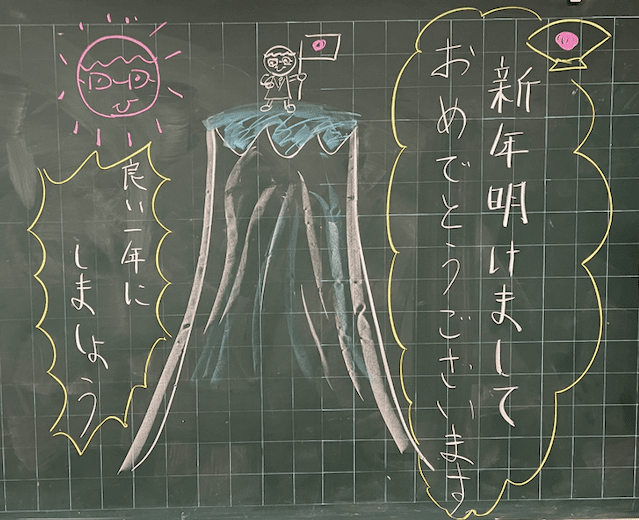 新年明けまして
おめでとうございます
良い一年に
しましょう